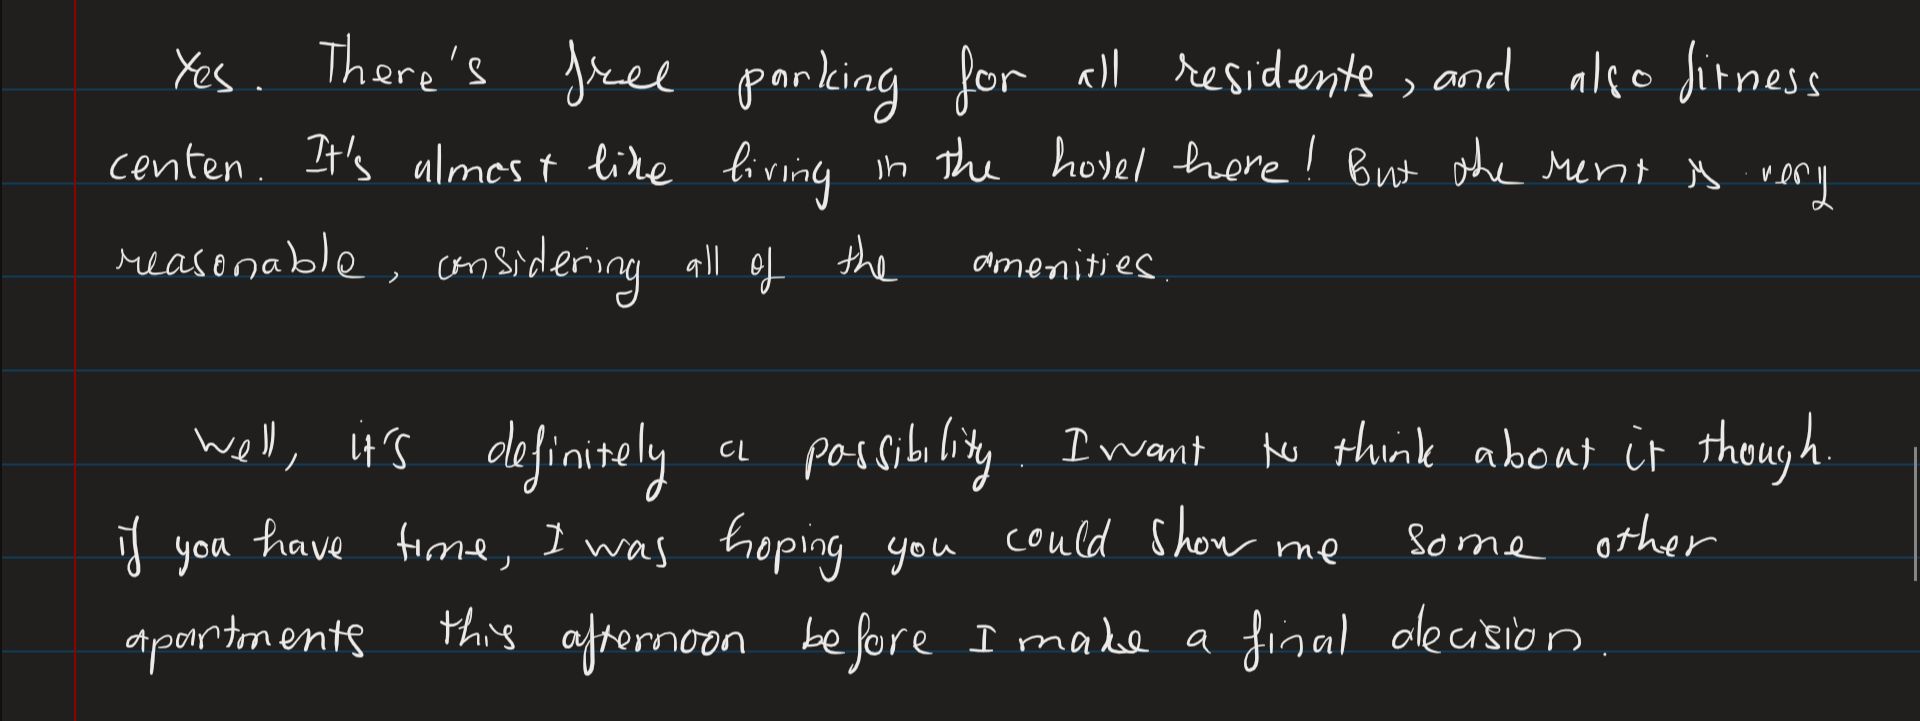 Yes. There's free parking for all residents, and also fitness
center. It's almost like living in the hotel here! But the rent is very
reasonable, considering all of the amenities.
Well, it's definitely a possibility. I want to think about it though.
if you have time, I was hoping you could show me some other
apartments this afternoon before I make a final decision.